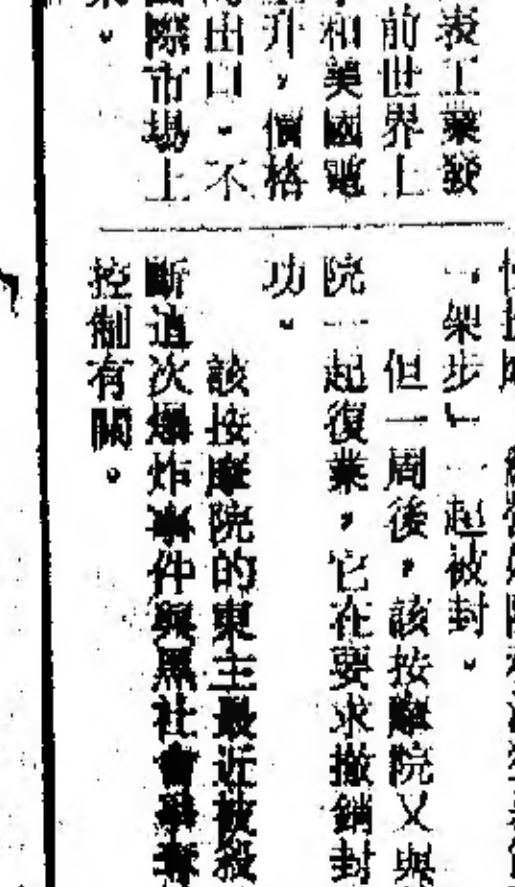 表工業發
前世界上
和美國電
升，價格
出口。不
國際市場上
「架步」一起被封。
但一周後，該按摩院又與
院一起復業，它在要求撤銷封
功。
該按摩院的東主最近被殺
斷這次爆炸事件與黑社會爭奪
控制有關。